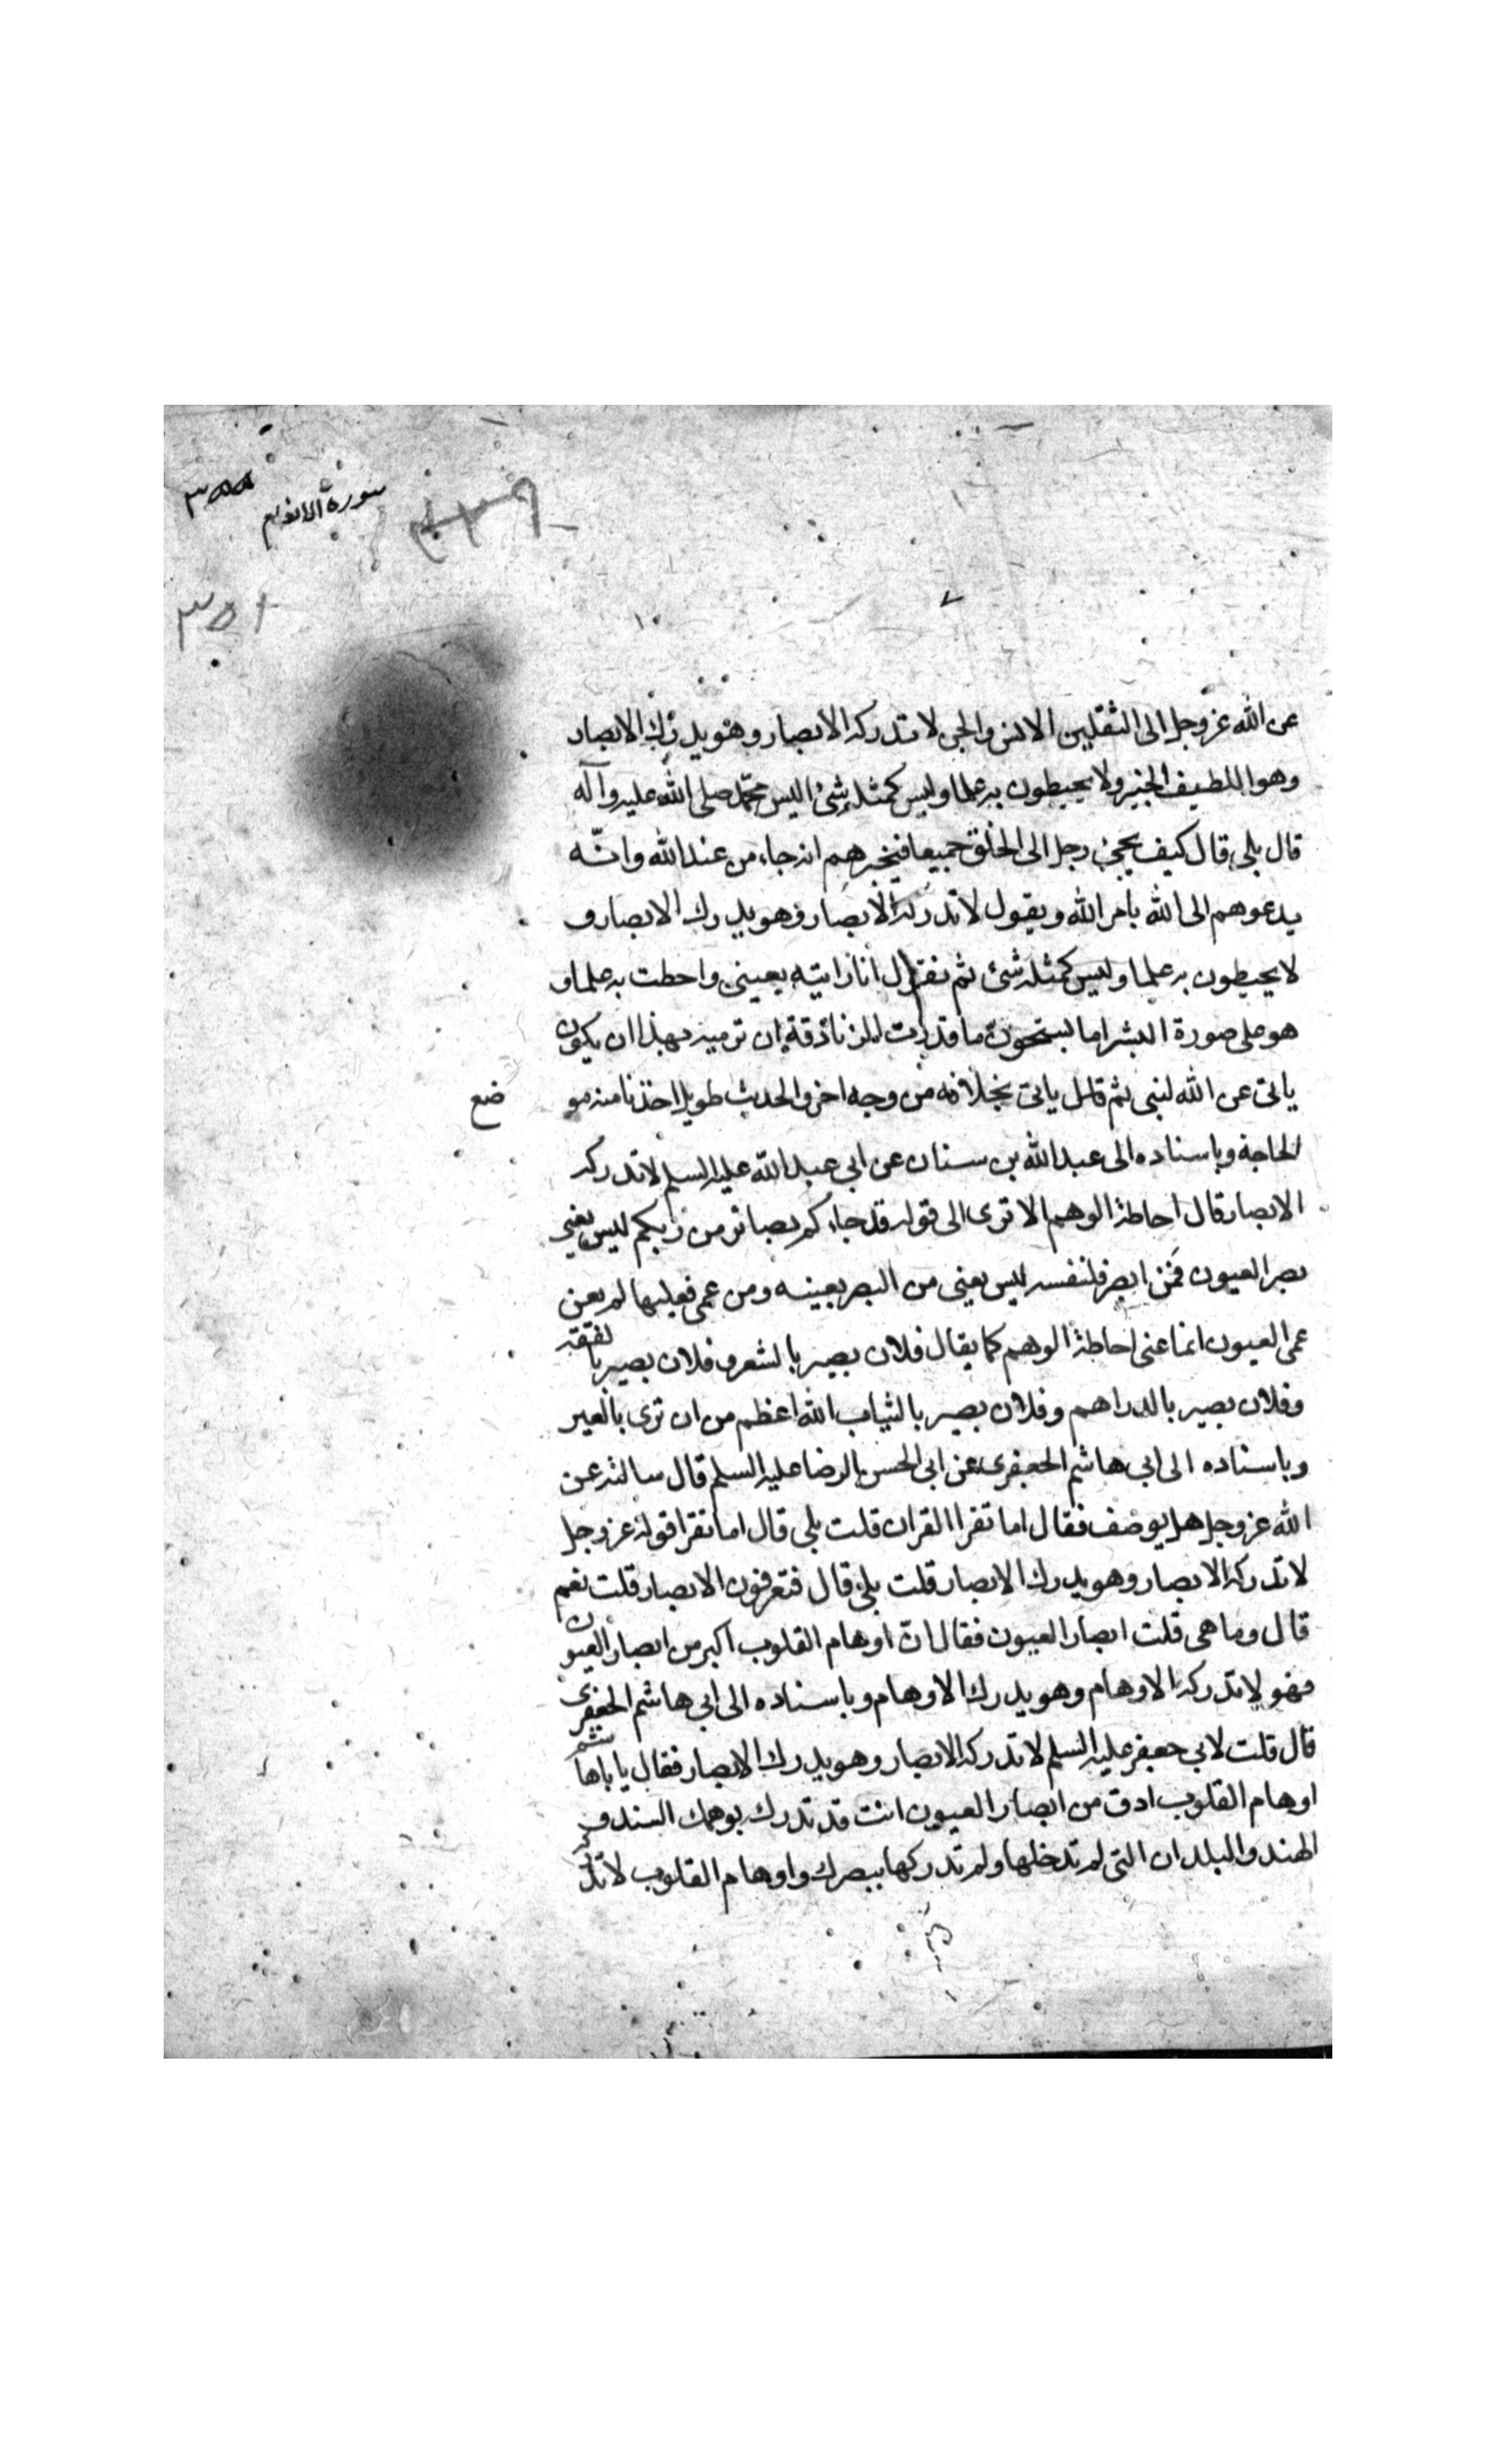 سورة الانعام
٣٥٥
٣٥١
عن الله عز وجل الى الثقلين الانس والجن لا تدركه الابصار وهو يدرك الابصار
وهو اللطيف الخبير ولا يحيطون به علما وليس كمثله شئ اليس محمد صلى الله عليه وآله
قال بلى قال كيف يجئ رجل الى الخلق جميعا فيخبرهم انه جاء من عند الله وانّه
يدعوهم الى الله بامر الله ويقول لا تدركه الابصار وهو يدرك الابصار و
لا يحيطون به علما وليس كمثله شئ ثم يقول انا رايته بعينى واحطت به علما و
هو على صورة البشر اما تستحون ما قدرت الزنادقة ان ترميه بهذا ان يكون
ياتى عن الله لشئ ثم ياتى بخلافه من وجه اخر والحديث طويل اخذنا منه مو
ضع
الحاجة وباسناده الى عبد الله بن سنان عن ابي عبد الله عليه السلم لا تدركه
الابصار قال احاطة الوهم الا ترى الى قوله قد جاءكم بصائر من ربكم ليس يعنى
بصر العيون فمن ابصر فلنفسه ليس يعنى من البصر بعينه ومن عمى فعليها لم يعن
عمى العيون انما عنى احاطة الوهم كما يقال فلان بصير بالشعر وفلان بصير بالفقه
وفلان بصير بالدراهم وفلان بصير بالثياب الله اعظم من ان ترى بالعين
وباسناده الى ابى هاشم الجعفرى عن ابى الحسن الرضا عليه السلم قال سالته عن
الله عز وجل هل يوصف فقال اما تقرا القران قلت بلى قال اما تقرا قوله عز وجل
لا تدركه الابصار وهو يدرك الابصار قلت بلى قال فتعرفون الابصار قلت نعم
قال وما هى قلت ابصار العيون فقال انّ اوهام القلوب اكبر من ابصار العيون
فهو لا تدركه الاوهام وهو يدرك الاوهام وباسناده الى ابى هاشم الجعفرى
قال قلت لابي جعفر عليه السلم لا تدركه الابصار وهو يدرك الابصار فقال يا باهاشم
اوهام القلوب ادق من ابصار العيون انت قد تدرك بوهمك السند و
الهند والبلدان التى لم تدخلها ولم تدركها ببصرك واوهام القلوب لا تدركه